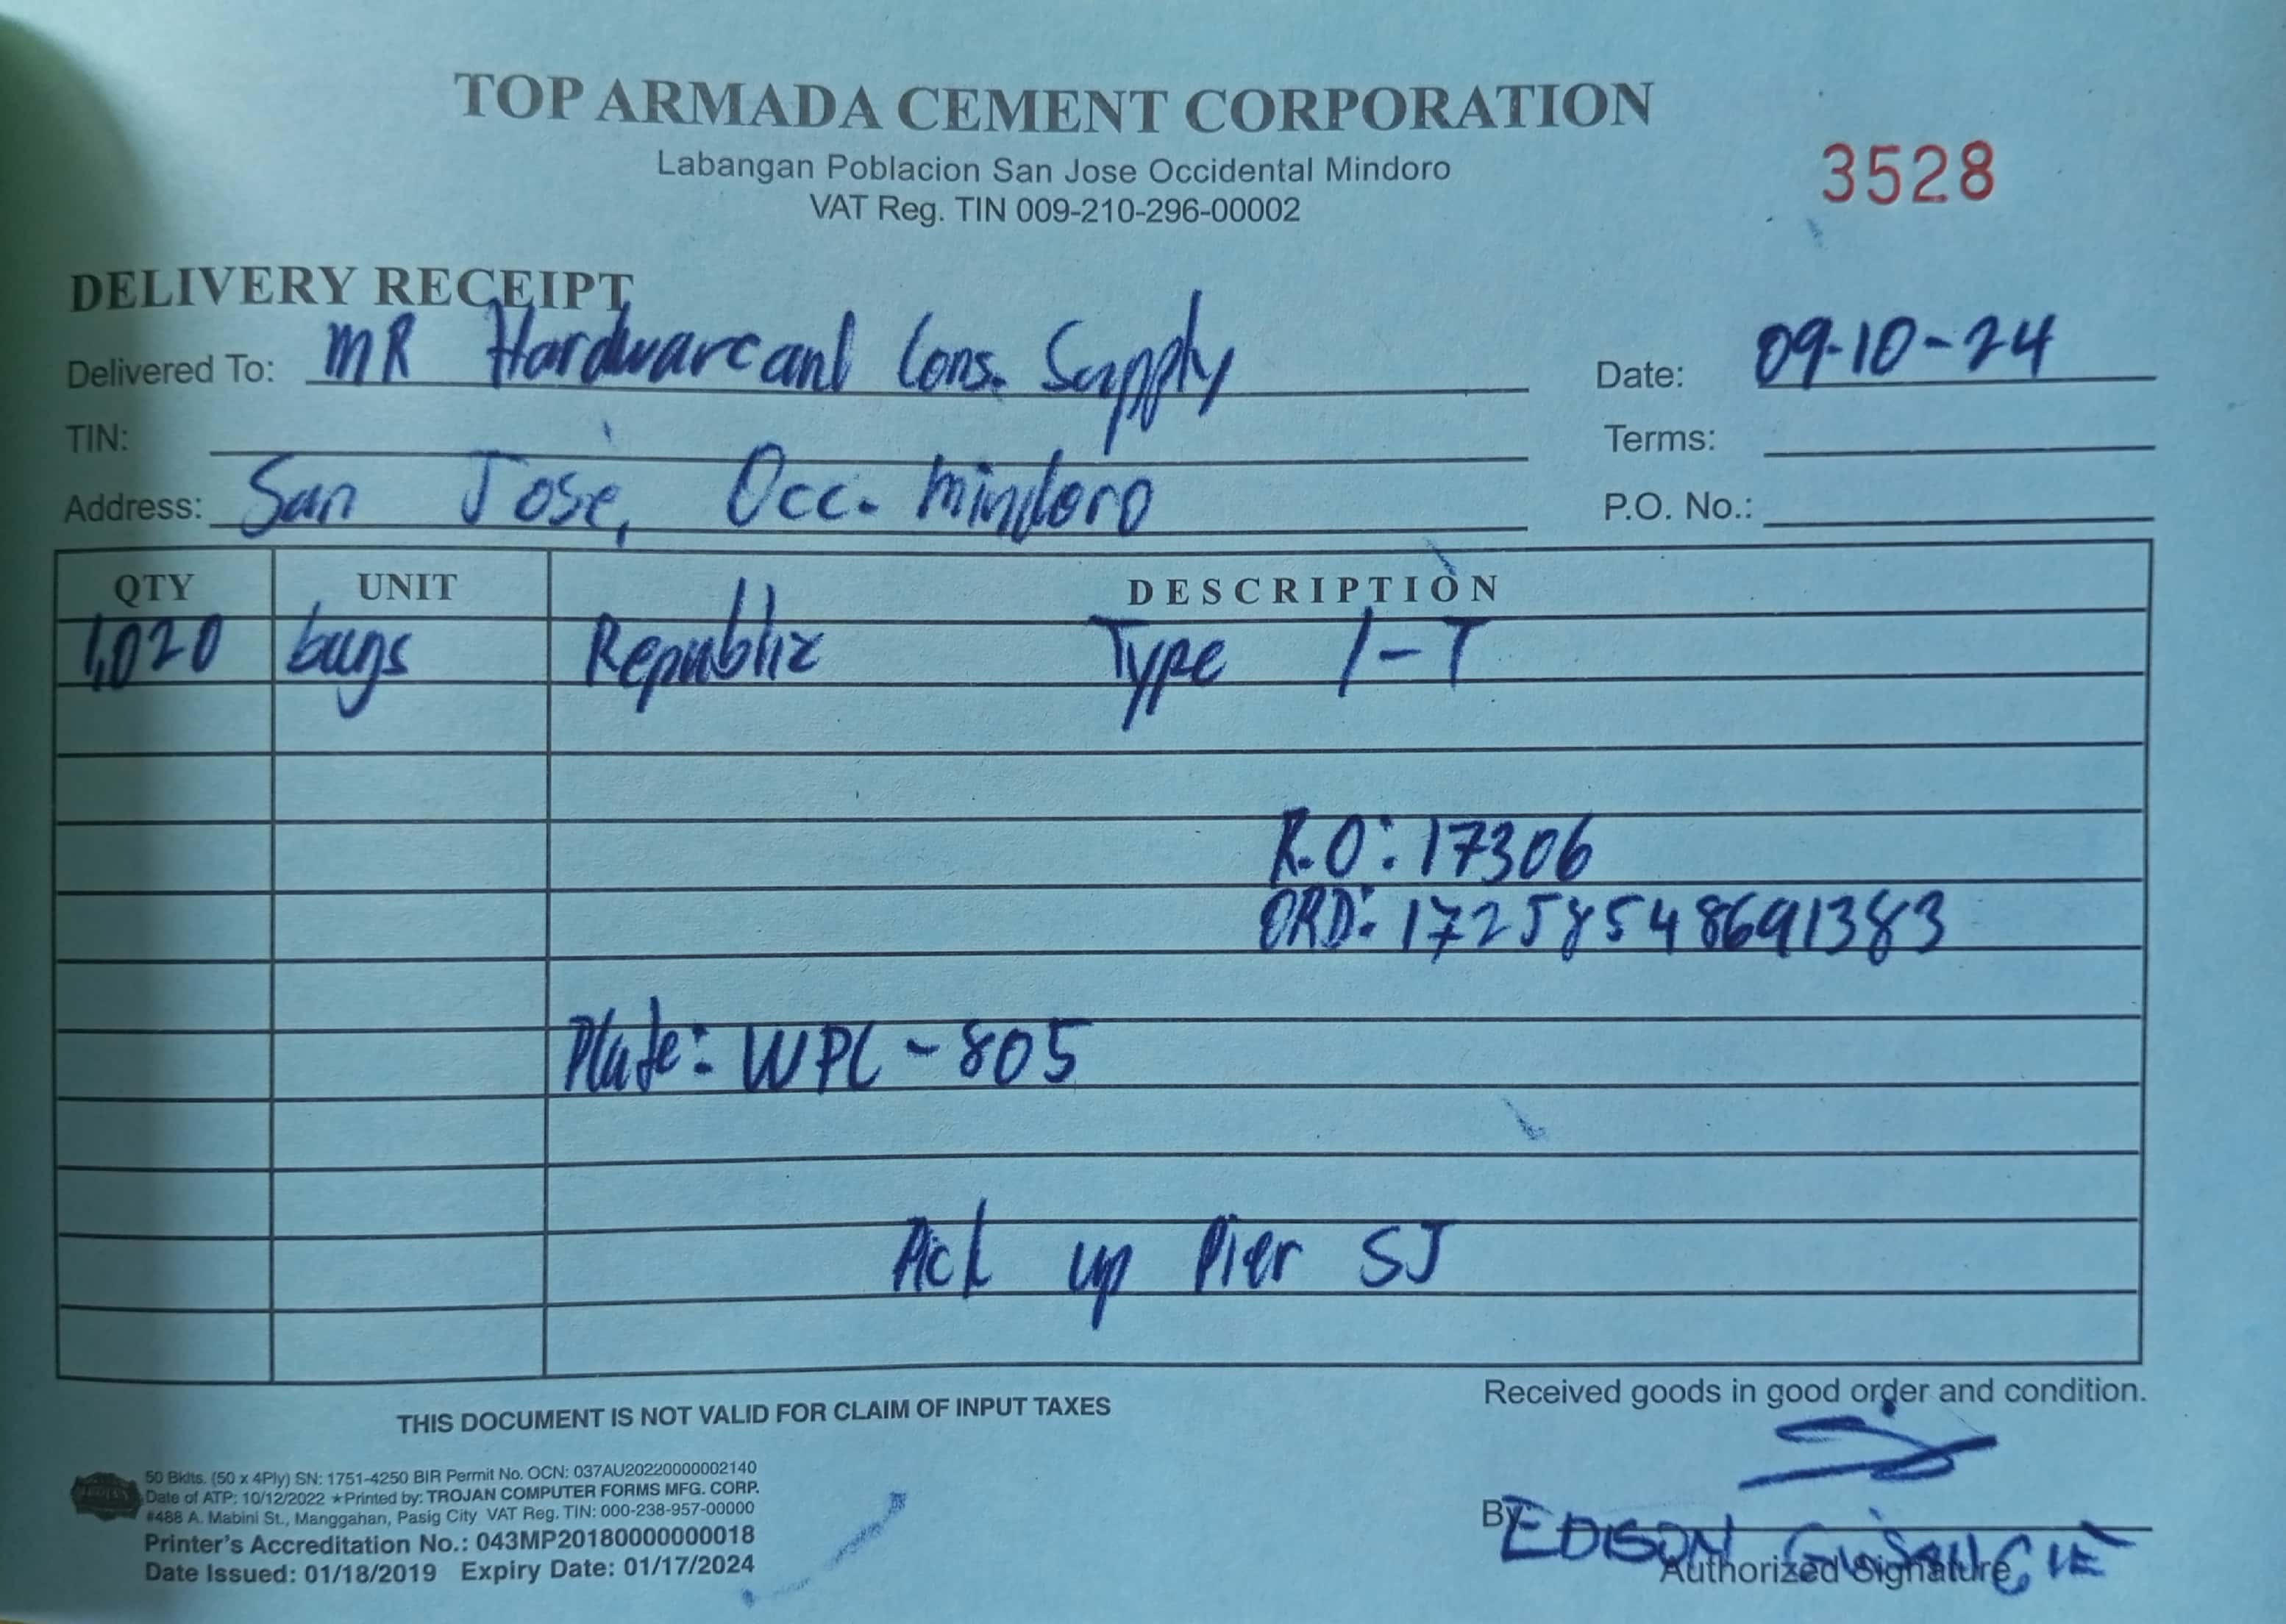 TOP ARMADA CEMENT CORPORATION
Labangan Poblacion San Jose Occidental Mindoro
VAT Reg. TIN 009-210-296-00002
3528
DELIVERY RECEIPT
Delivered To: MR Hardware and Cons. Supply
Date: 09-10-24
TIN:
Terms:
Address: San Jose, Occ. Mindoro
P.O. No.:
QTY UNIT DESCRIPTION
1,020 bags Republic Type 1-T
R.O: 17306
ORD: 17258548691383
Plate: WPL-805
Pick up Pier SJ
THIS DOCUMENT IS NOT VALID FOR CLAIM OF INPUT TAXES
Received goods in good order and condition.
50 Bklts. (50 x 4Ply) SN: 1751-4250 BIR Permit No. OCN: 037AU20220000002140
Date of ATP: 10/12/2022 ★Printed by: TROJAN COMPUTER FORMS MFG. CORP.
#488 A. Mabini St., Manggahan, Pasig City VAT Reg. TIN: 000-238-957-00000
Printer's Accreditation No.: 043MP20180000000018
Date Issued: 01/18/2019 Expiry Date: 01/17/2024
By: EDISON
Authorized Signature